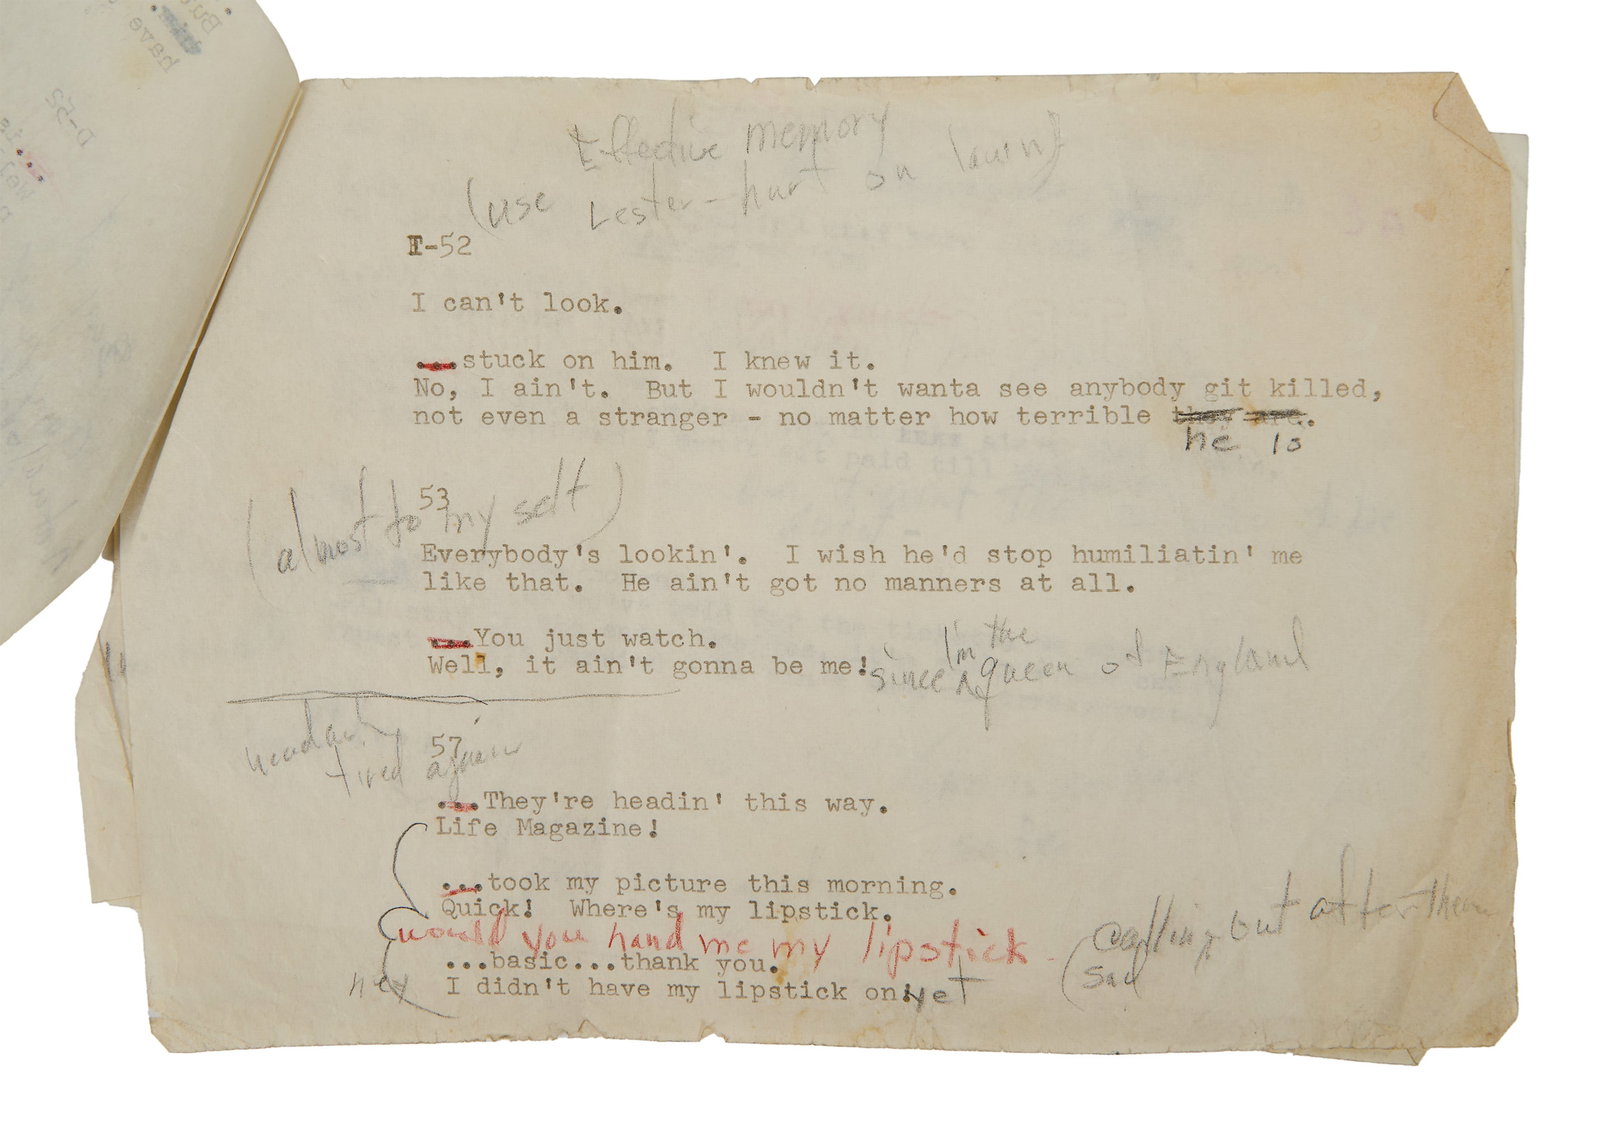 Effective memory
(use Lester - hurt on lawn)
I-52
I can't look.
...stuck on him. I knew it.
No, I ain't. But I wouldn't wanta see anybody git killed,
not even a stranger - no matter how terrible they are.
he is
53
(almost to my self)
Everybody's lookin'. I wish he'd stop humiliatin' me
like that. He ain't got no manners at all.
...You just watch.
I'm the
Well, it ain't gonna be me! since queen of England
57
tired again
...They're headin' this way.
Life Magazine!
...took my picture this morning.
Quick! Where's my lipstick.
would you hand me my lipstick
calling out after them
(sad
...basic...thank you.
hey I didn't have my lipstick on yet
D-52
have